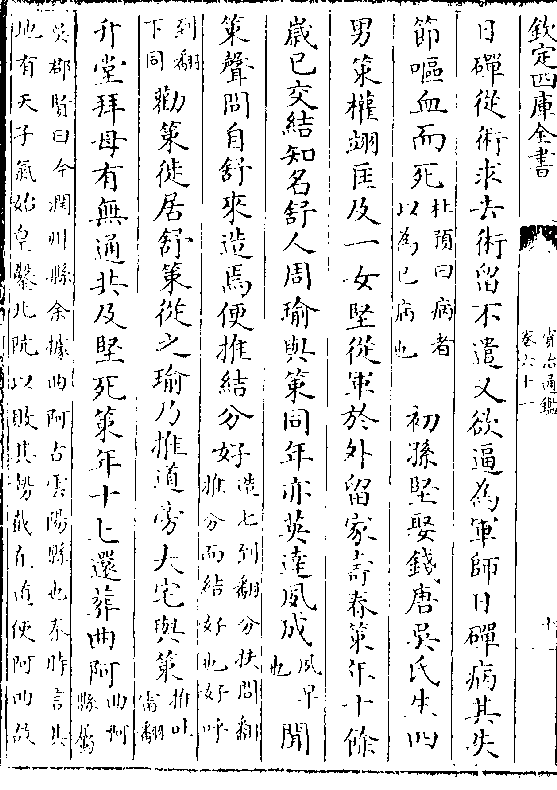 欽定四庫全書
資治通鑑
卷六十一
日磾從術求去術留不遣又欲逼為軍師日磾病其失
節嘔血而死杜預曰病者以為已病也 初孫堅娶錢唐吳氏生四
男策權翊匡及一女堅從軍於外留家壽春策年十餘
歲已交結知名舒人周瑜與策同年亦英達夙成夙早也聞
策聲問自舒來造焉便推結分好造七到翻分扶問翻推分而結好也好呼
到翻下同勸策徙居舒策從之瑜乃推道旁大宅與策推吐雷翻
升堂拜母有無通共及堅死策年十七還葬曲阿曲阿縣屬
吳郡賢曰今潤州縣余據曲阿古雲陽縣也秦時言其
地有天子氣始皇鑿北阬以敗其勢截直道使阿曲故